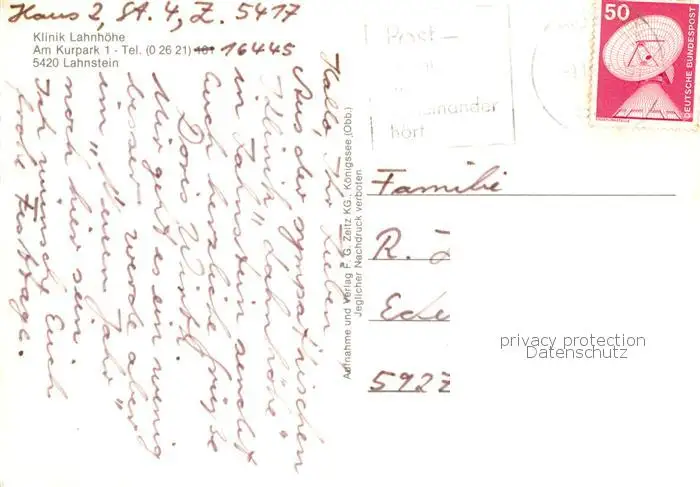 Haus 2, St. 4, Z. 5417
Klinik Lahnhöhe
Am Kurpark 1 - Tel. (0 26 21) 16445
5420 Lahnstein
Hallo, Ihr Lieben
Aus der sympathischen
Klinik "Lahnhöhe"
in Lahnstein sendet
Euch herzliche Grüße
Doris
Mir geht es ein wenig
besser, werde aber
im "Neuen Jahr"
noch hier sein.
Ich wünsche Euch
frohe Festtage.
Aufnahme und Verlag F. G. Zeitz KG., Königssee (Obb.)
Jeglicher Nachdruck verboten
Post-
einander
hört
50
DEUTSCHE BUNDESPOST
Familie
R.
5927
privacy protection
Datenschutz